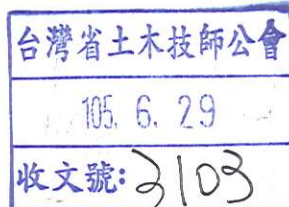 台灣省土木技師公會
105. 6. 29
收文號:3103